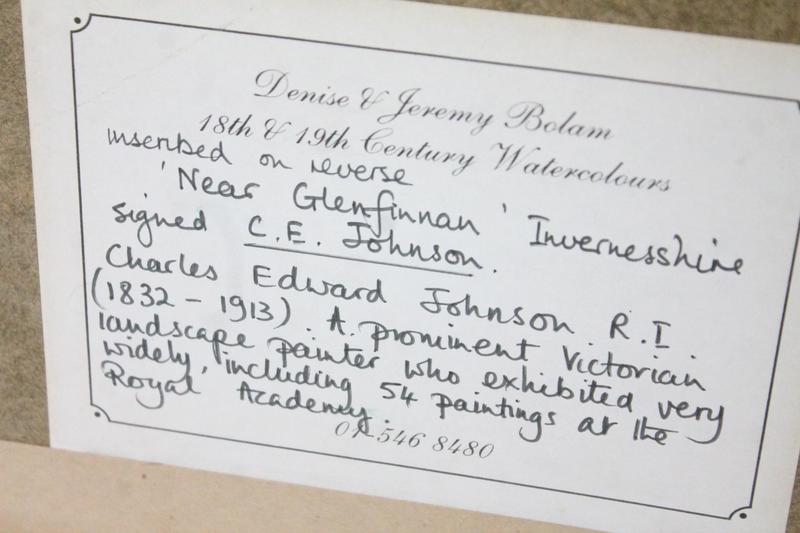 Denise & Jeremy Bolam
18th & 19th Century Watercolours
inscribed on reverse
'Near Glenfinnan' Invernesshire
signed C.E. Johnson.
Charles Edward Johnson R.I.
(1832 - 1913). A prominent Victorian
landscape painter who exhibited very
widely, including 54 paintings at the
Royal Academy.
01-546 8480